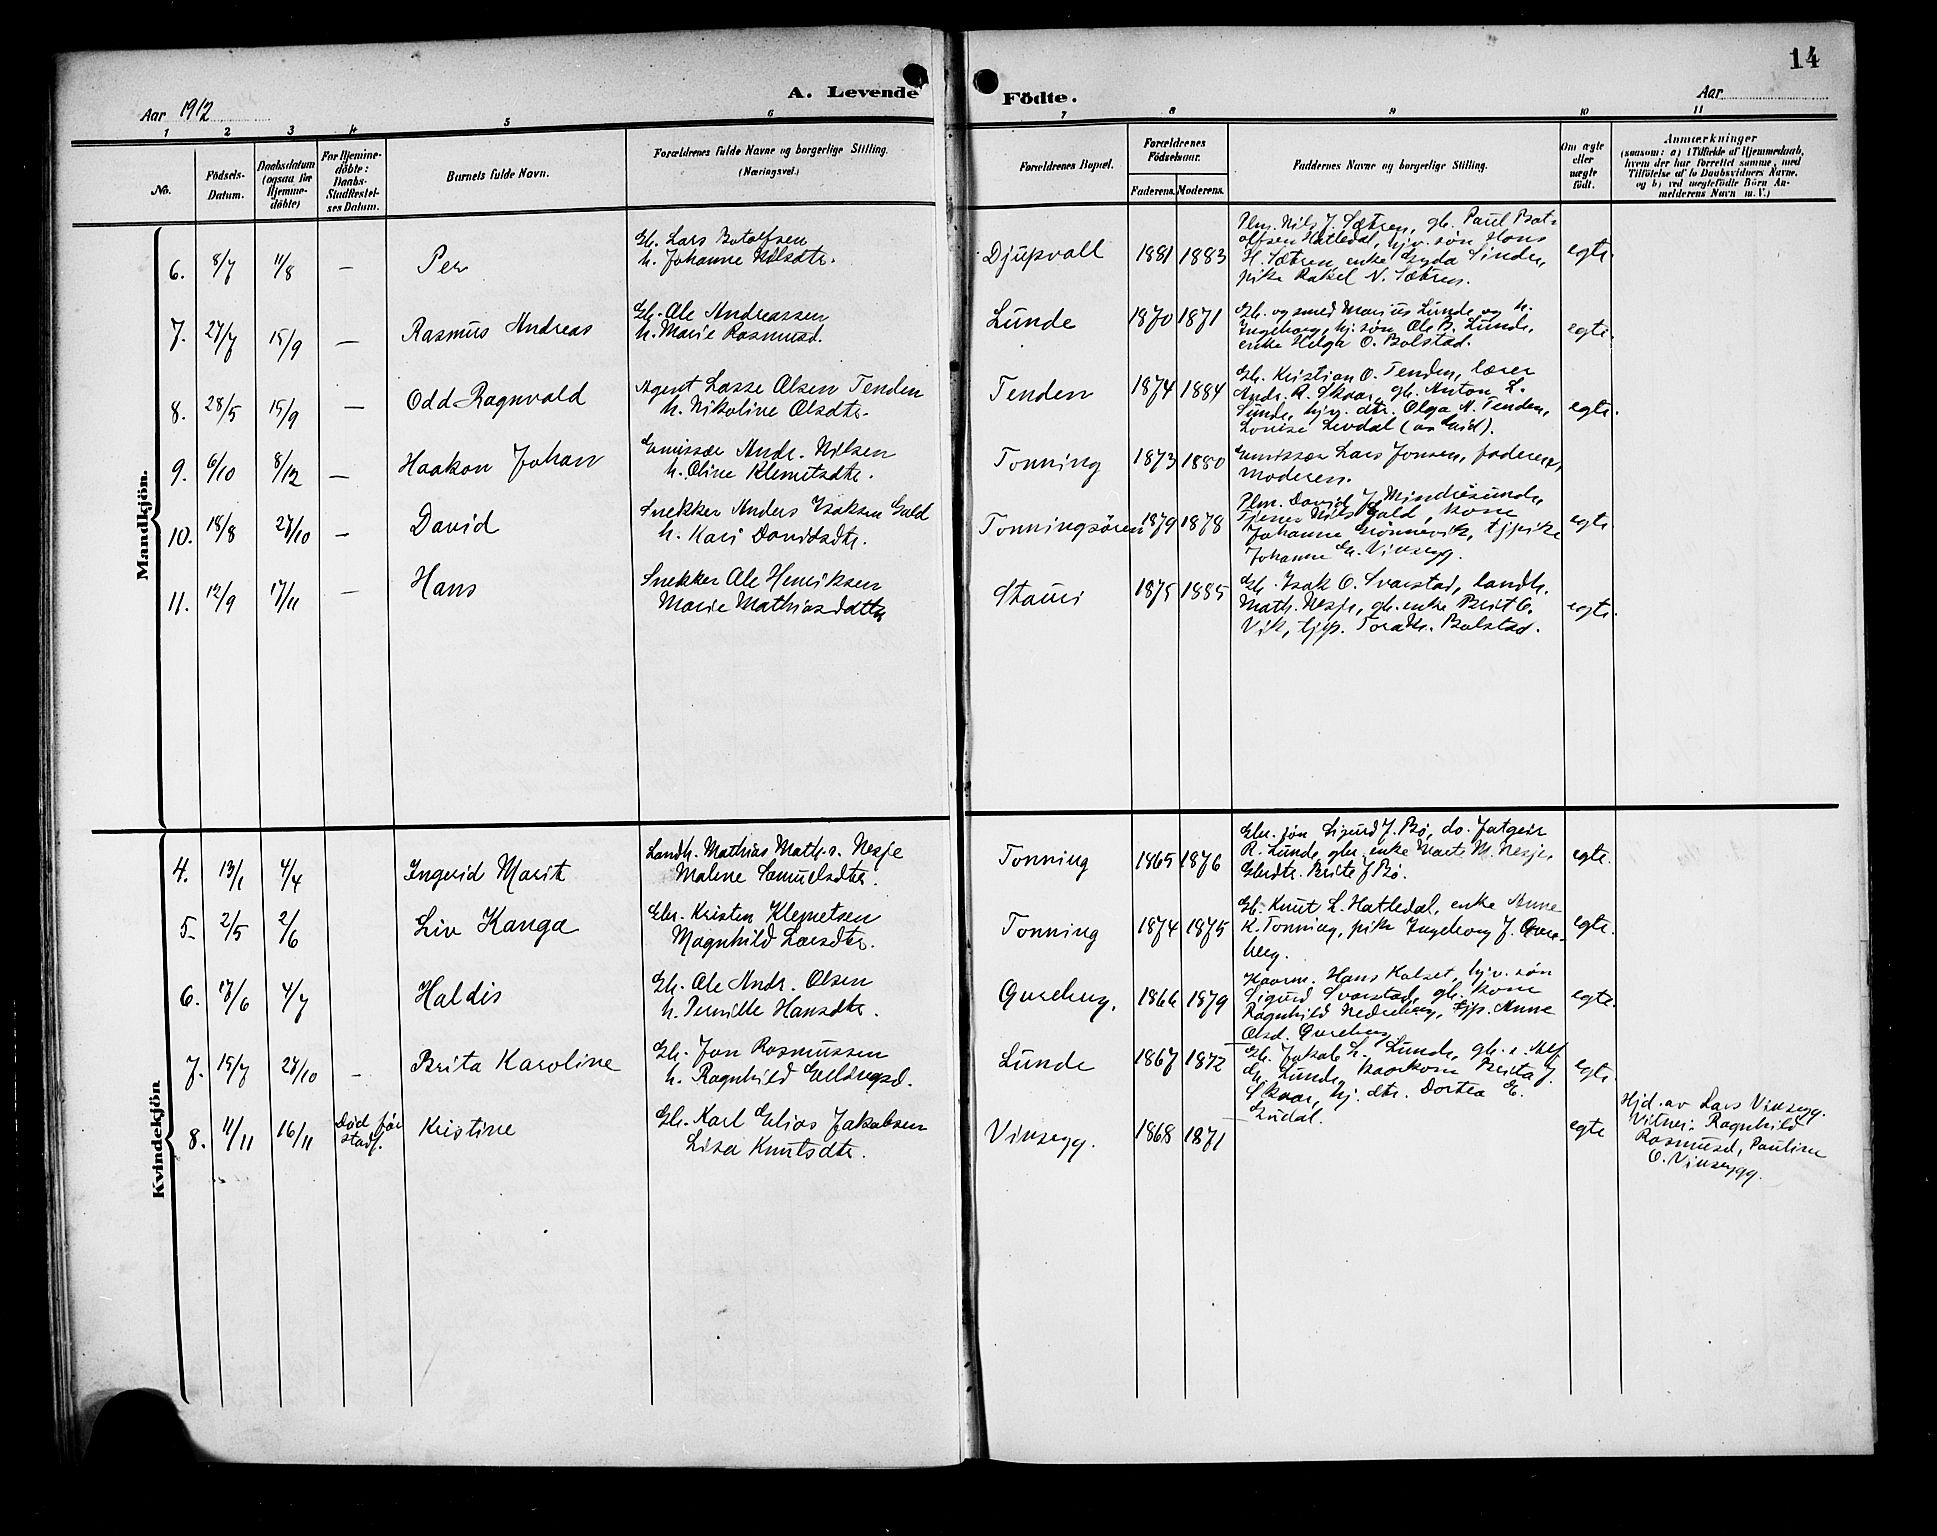 14
Aar 1912
A. Levende
Födte.
Aar
1 2 3 4 5 6 7 8 9 10 11
No.
Födsels-Datum.
Daabsdatum (ogsaa for Hjemmedöbte)
For Hjemmedöbte: Daabs-Stadfestelses Datum.
Barnets fulde Navn.
Forældrenes fulde Navne og borgerlige Stilling.
(Næringsvei.)
Forældrenes Bopæl.
Forældrenes Födselsaar.
Faderens. Moderens.
Faddernes Navne og borgerlige Stilling.
Om ægte eller uægte födt.
Anmærkninger
(saasom: a) i Tilfælde af Hjemmedaab,
hvem der har forrettet samme, med
Tilföielse af to Daabsvidners Navne,
og b) ved uægtefödte Börn An-
melderens Navn m. V.)
Mandkjön.
6. 8/7 11/8 — Per
Gbr. Lars Botolfsen
h. Johanne Nilsdtr.
Djupvall 1881 1883
Plm. Nils J. Sætren, gb. Paul Bot-
olfsen Hatledal, hjv. søn Hans
H. Sætren, enke Gyda Sinden,
pike Rakel N. Sætren.
egte.
7. 27/7 15/9 — Rasmus Andreas
Gb. Ole Andreassen
h. Marie Rasmusd.
Lunde 1870 1871
Gb. og smed Marius Lunde og h.
Ingeborg, hj. søn Ole B. Lunde,
enke Helga O. Bolstad.
egte.
8. 28/5 15/9 — Odd Ragnvald
Agent Lasse Olsen Tenden
h. Nikoline Olsdtr.
Tenden 1874 1884
Gb. Kristian O. Tenden, lærer
Andr. R. Skaar, gb. Anton L.
Lunde, hjv. dtr. Olga N. Tenden,
Lovise Levdal
egte.
9. 6/10 8/12 — Haakon Johan
Emissær Andr. Nilsen
h. Oline Klemetsdtr.
Tonning 1873 1880
Emissær Lars Jonsen, faderen,
moderen.
10. 18/8 27/10 — David
Snekker Anders Isaksen Guld
h. Kari Davidsdtr.
Tonningsøren 1879 1878
Plm. David J. Mindresunde
Tjener Nils Gald, kone
Johanne Grønnevik, tjpike
Johanne Vinsegg.
egte.
11. 12/9 17/11 — Hans
Snekker Ole Henriksen
Marie Mathiasdatter
Stauri 1875 1885
Gb. Isak O. Svarstad, landh.
Math. Nesje, gb. enke Brit O.
Vik, tjp. Tora Bolstad.
egte.
Kvindekjön
4. 13/1 4/4 Ingerid Marit
Landh. Mathias Math.s. Nesje
Malene Samuelsdtr.
Tonning 1865 1876
Gbr. søn Sigurd J. Bø, do. Jatgeir
R. Lunde, gbr. enke Marte M. Nesje,
Gbrdtr. Brite J Bø.
egte.
5. 2/5 2/6 Liv Kanga
Gbr. Kristen Klemetsen
Magnhild Larsdtr.
Tonning 1874 1875
Gb. Knut L. Hatledal, enke Anne
K. Tonning, pike Ingeborg J. Qvre-
berg.
egte.
6. 17/6 4/7 Haldis
Gb. Ole Andr. Olsen
h. Pernille Hansdtr.
Qvreberg, 1866 1879
Kaarm. Hans Kolset, hjv. søn
Sigurd Svarstad, gb. kone
Ragnhild Nedreberg, tjp. Anne
Olsd. Qvreberg.
egte.
7. 15/7 27/10 — Brita Karoline
Gb. Jon Rasmussen
h. Ragnhild Eldregsd.
Lunde 1867 1872
Gb. Jakob L. Lunde, gb. s. Alf
Lunde, kaarkone Brita J.
Skaar, hj. dtr. Dortea E.
Gudal.
egte.
8. 11/11 16/11 Død før stadf. Kristine
Gb. Karl Elias Jakobsen
Lisa Knutsdtr.
Vinsegg. 1868 1871
egte
Hjd. av Lars Vinsegg.
Vitner: Ragnhild
Rasmusd, Pauline
O. Vinsegg.